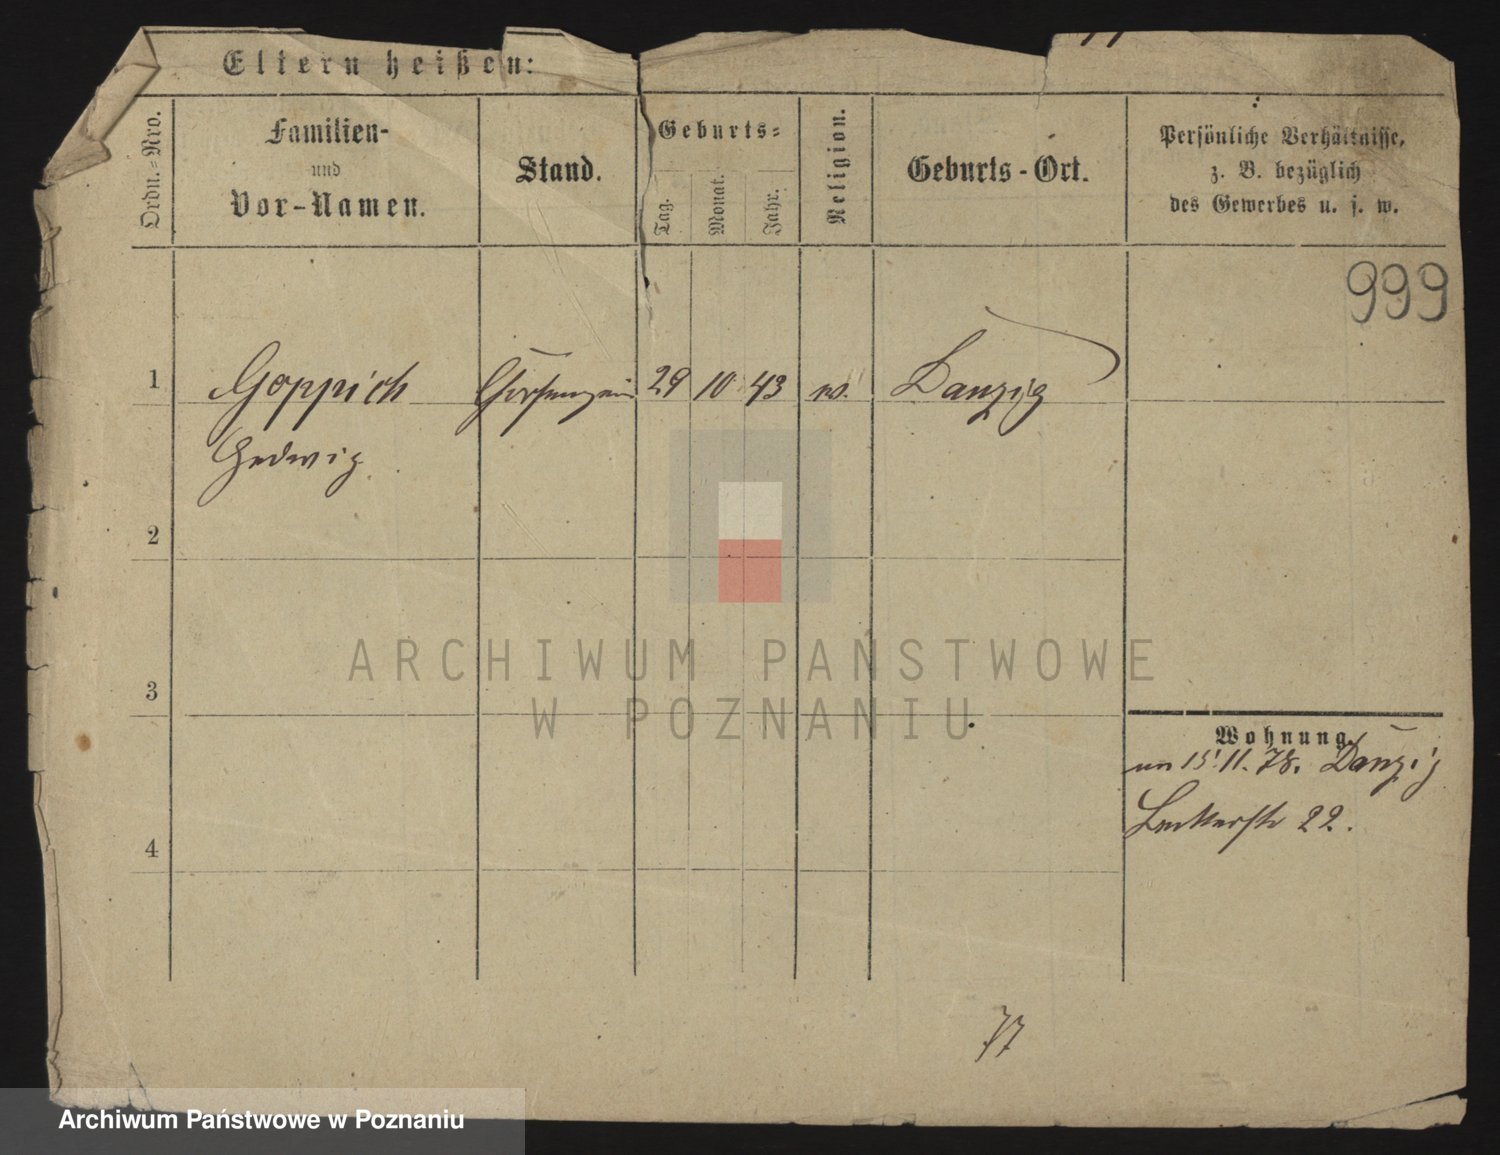 Eltern heißen:
Ordn.-Nro.
Familien-
und
Vor-Namen.
Stand.
Geburts-
Tag.
Monat.
Jahr.
Religion.
Geburts-Ort.
Persönliche Verhältnisse,
z. B. bezüglich
des Gewerbes u. s. w.
999
1 Goppich 29 10 43 w. Danzig
Hedwig
2
3
4
Wohnung.
15/11. 78. Danzig
22.
77
ARCHIWUM PAŃSTWOWE
W POZNANIU
Archiwum Państwowe w Poznaniu